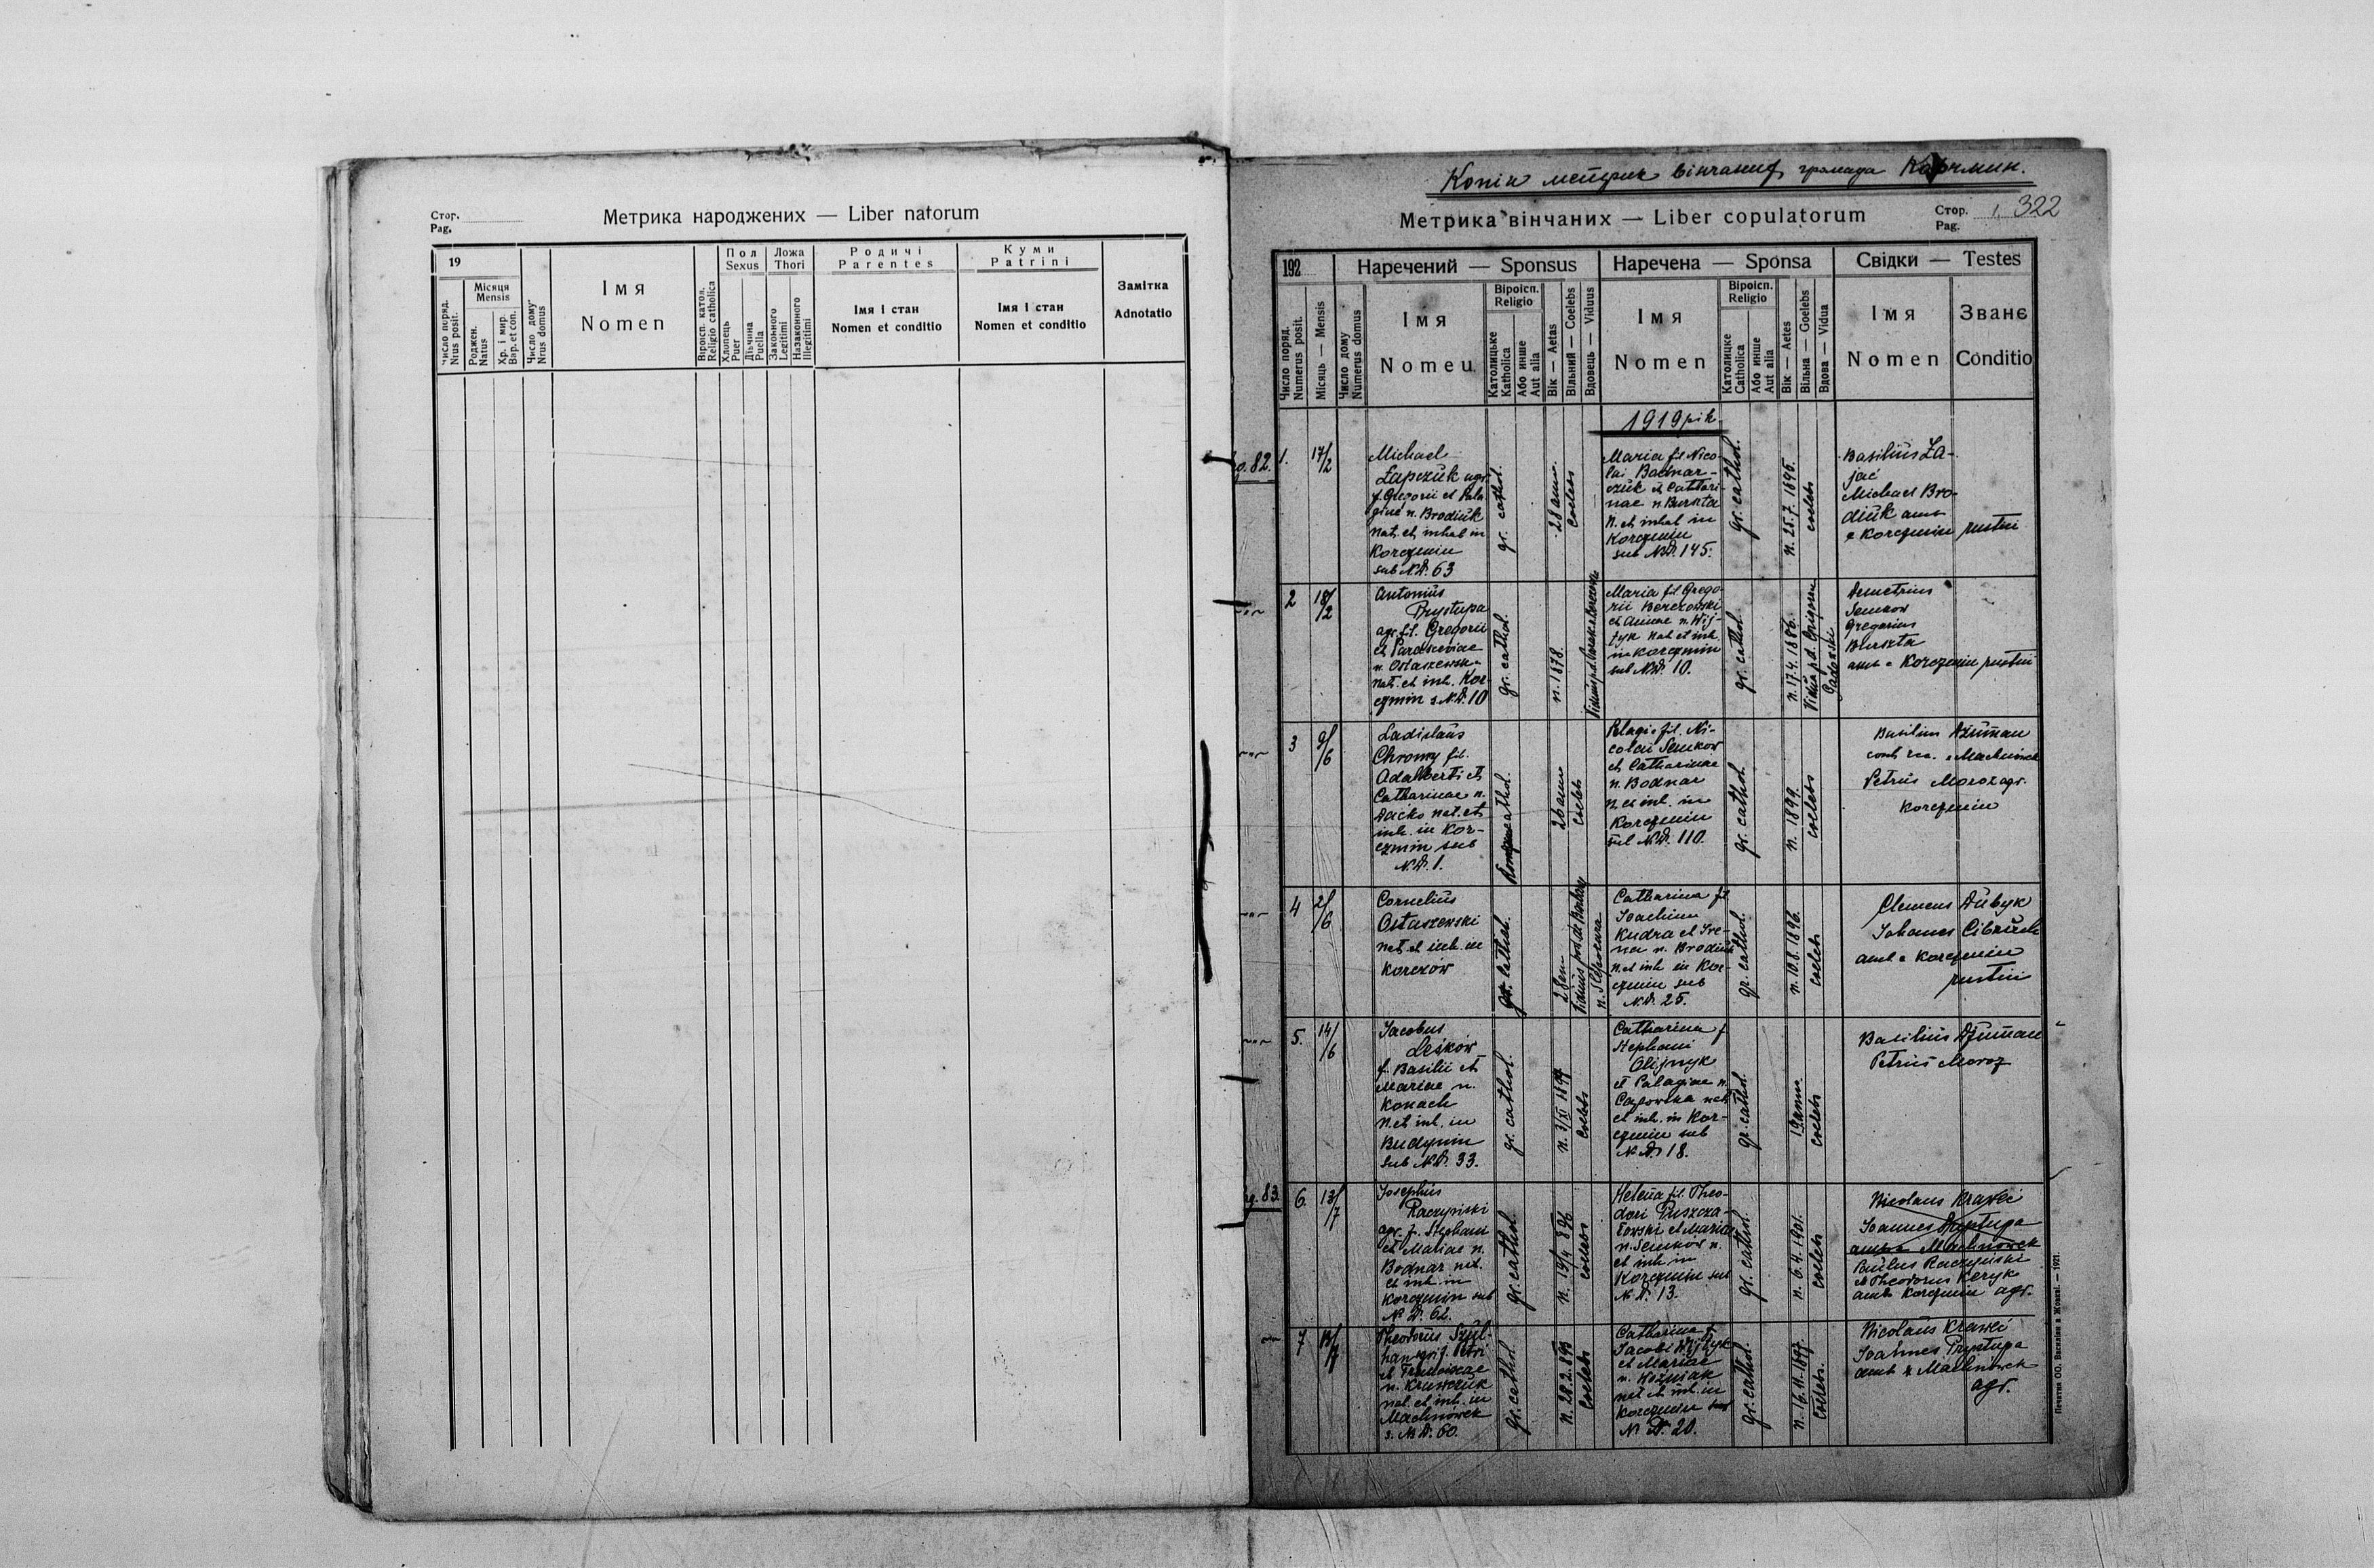 Стор.
Pag.
Метрика народжених — Liber natorum
19
Число поряд.
Nrus posit.
Місяця
Mensis
Роджен.
Natus
Хр. і мир.
Bap. et con.
Число дому
Nrus domus
І м я
N o m e n
Віроісп. катол.
Religio catholica
П о л
Sexus
Хлопець
Puer
Дівчина
Puella
Ложа
Thori
Законного
Legitimi
Назаконного
Illegitimi
Р о д и ч і
P a r e n t e s
Імя і стан
Nomen et conditio
К у м и
P a t r i n i
Імя і стан
Nomen et conditio
Замітка
Adnotatio
Копія метрик вінчаних громада Корчмин.
Метрика вінчаних — Liber copulatorum
Стор. 1. 322
Pag.
192
Число поряд.
Numerus posit.
Місяць — Mensis
Число дому
Numerus domus
Наречений — Sponsus
І м я
N o m e u
Віроісп.
Religio
Католицьке
Katholica
Або инше
Aut alia
Вік — Aetas
Вільний — Coelebs
Вдовець — Viduus
Наречена — Sponsa
І м я
N o m e n
Віроісп.
Religio
Католицке
Catholica
Або инше
Aut alia
Вік — Aetes
Вільна — Goelebs
Вдова — Vidua
Свідки — Testes
І м я
N o m e n
Званє
Conditio
1919 рік
g. 82.
1.
17/2
Michael
Łapczuk agr.
f. Gregorii et Pela
giae n. Brodiuk
nat. et inhab in
Korczmin
sub N.D. 63
gr. cathol.
28 ann.
coelebs
Maria fil Nico-
lai Bodnar-
czuk et Cathari-
nae n Burszta
n. et inhab in
Korczmin
sub N.D. 145.
gr. cathol.
n. 25.7.1895.
coelebs
Basilius Za-
jać
Michael Bro-
diuk amb
e Korczmin rustici
2
18/2
Antonius
Prystupa
agr. f. Gregorii
et Parasceviae
n. Ostaszewska
nat. et inh. Kor-
czmin s. N.D. 10
gr. cathol.
n. 1878.
Maria fil Grego-
rii Berezowski
et Annae n. Wij-
tyk nat et inh.
in Korczmin
sub N.D. 10.
gr. cathol.
n. 17.4.1886.
Vidua p.d. Grigorii
Sadowski
Demetrius
Semkow
Gregorius
Burszta
amb e Korczmin rustici
3
9/6
Ladislaus
Chromy fil.
Adalberti et
Catharinae n.
Dacko nat. et
inh. in Kor-
czmin sub
N.D. 1.
cathol.
26 ann
coelebs
Pelagia fil. Ni-
colai Semkow
et Catharinae
n. Bodnar
n. et inh. in
Korczmin
sub N.D. 110.
gr. cathol.
n. 1899.
coelebs
Basilius Dżuman
Machnówek
Petrus Moroz agr.
Korczmin
4
2/6
Cornelius
Ostaszewski
nat. et inh. in
Korczów
gr. cathol.
28 ann
Catharina fil
Joachim
Kudra et Ire-
nae n. Brodiuk
n. et inh in Kor-
czmin sub
N.D. 25.
gr. cathol.
n. 10.8.1896.
coelebs
Clemens Dubyk
Johannes Cibruch
amb e Korczmin
rustici
5.
14/6
Jacobus
Leśkow
f. Basilii et
Mariae n.
Konach
n. et inh. in
Budynin
sub N.D. 33.
gr. cathol.
n. 3/XI 1897
coelebs
Catharina f.
Stephani
Olijnyk
et Palagiae n.
nat
et inh. in Kor-
czmin sub
N.D. 18.
gr. cathol.
19 ann
coelebs
Basilius Dżuman
Petrus Moroz
g. 83.
6.
13/7
Josephus
Raczyński
agr. f. Stephani
et Mariae n.
Bodnar nat.
et inh in
Korczmin sub
N.D. 62.
gr. cathol.
n. 19/4 896
coelebs
Helena fil. Theo-
dori Puszcza-
łowski et Mariae
n. Semkow n.
et inh in
Korczmin sub
N.D. 13.
gr. cathol.
n. 6.4.1901.
coelebs
Nicolaus Kraweć
Joannes Prystupa
amb e Machnowek
Paulus Raczyński
et Theodorus Keryk
amb. Korczmin agr.
7
13/7
Theodorus Szul-
han agr. f. Petri
et Franciscae
n. Krawczuk
nat. et inh. in
Machnówek
s. N.D. 60.
gr. cathol.
n. 28.2.895
coelebs
Catharina f.
Jacobi Wijtyk
et Mariae
n. Woźniak
nat et inh. in
Korczmin sub
N.D. 20.
gr. cathol.
n. 16.11.1897.
coelebs.
Nicolaus Kraweć
Joannes Prystupa
amb e Machnówek
agr.
Печатня ОО. Василіян в Жовкві. — 1921.